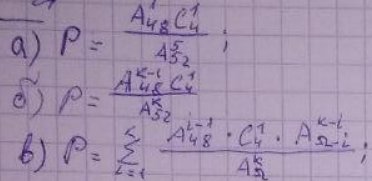 а) P = \frac{A_{48}^{4} C_{4}^{1}}{A_{52}^{5}} ;
б) P = \frac{A_{48}^{k-1} C_{4}^{1}}{A_{52}^{k}}
в) P = \sum_{i=1}^{k} \frac{A_{48}^{i-1} \cdot C_{4}^{1} \cdot A_{52-i}^{k-i}}{A_{52}^{k}} ;